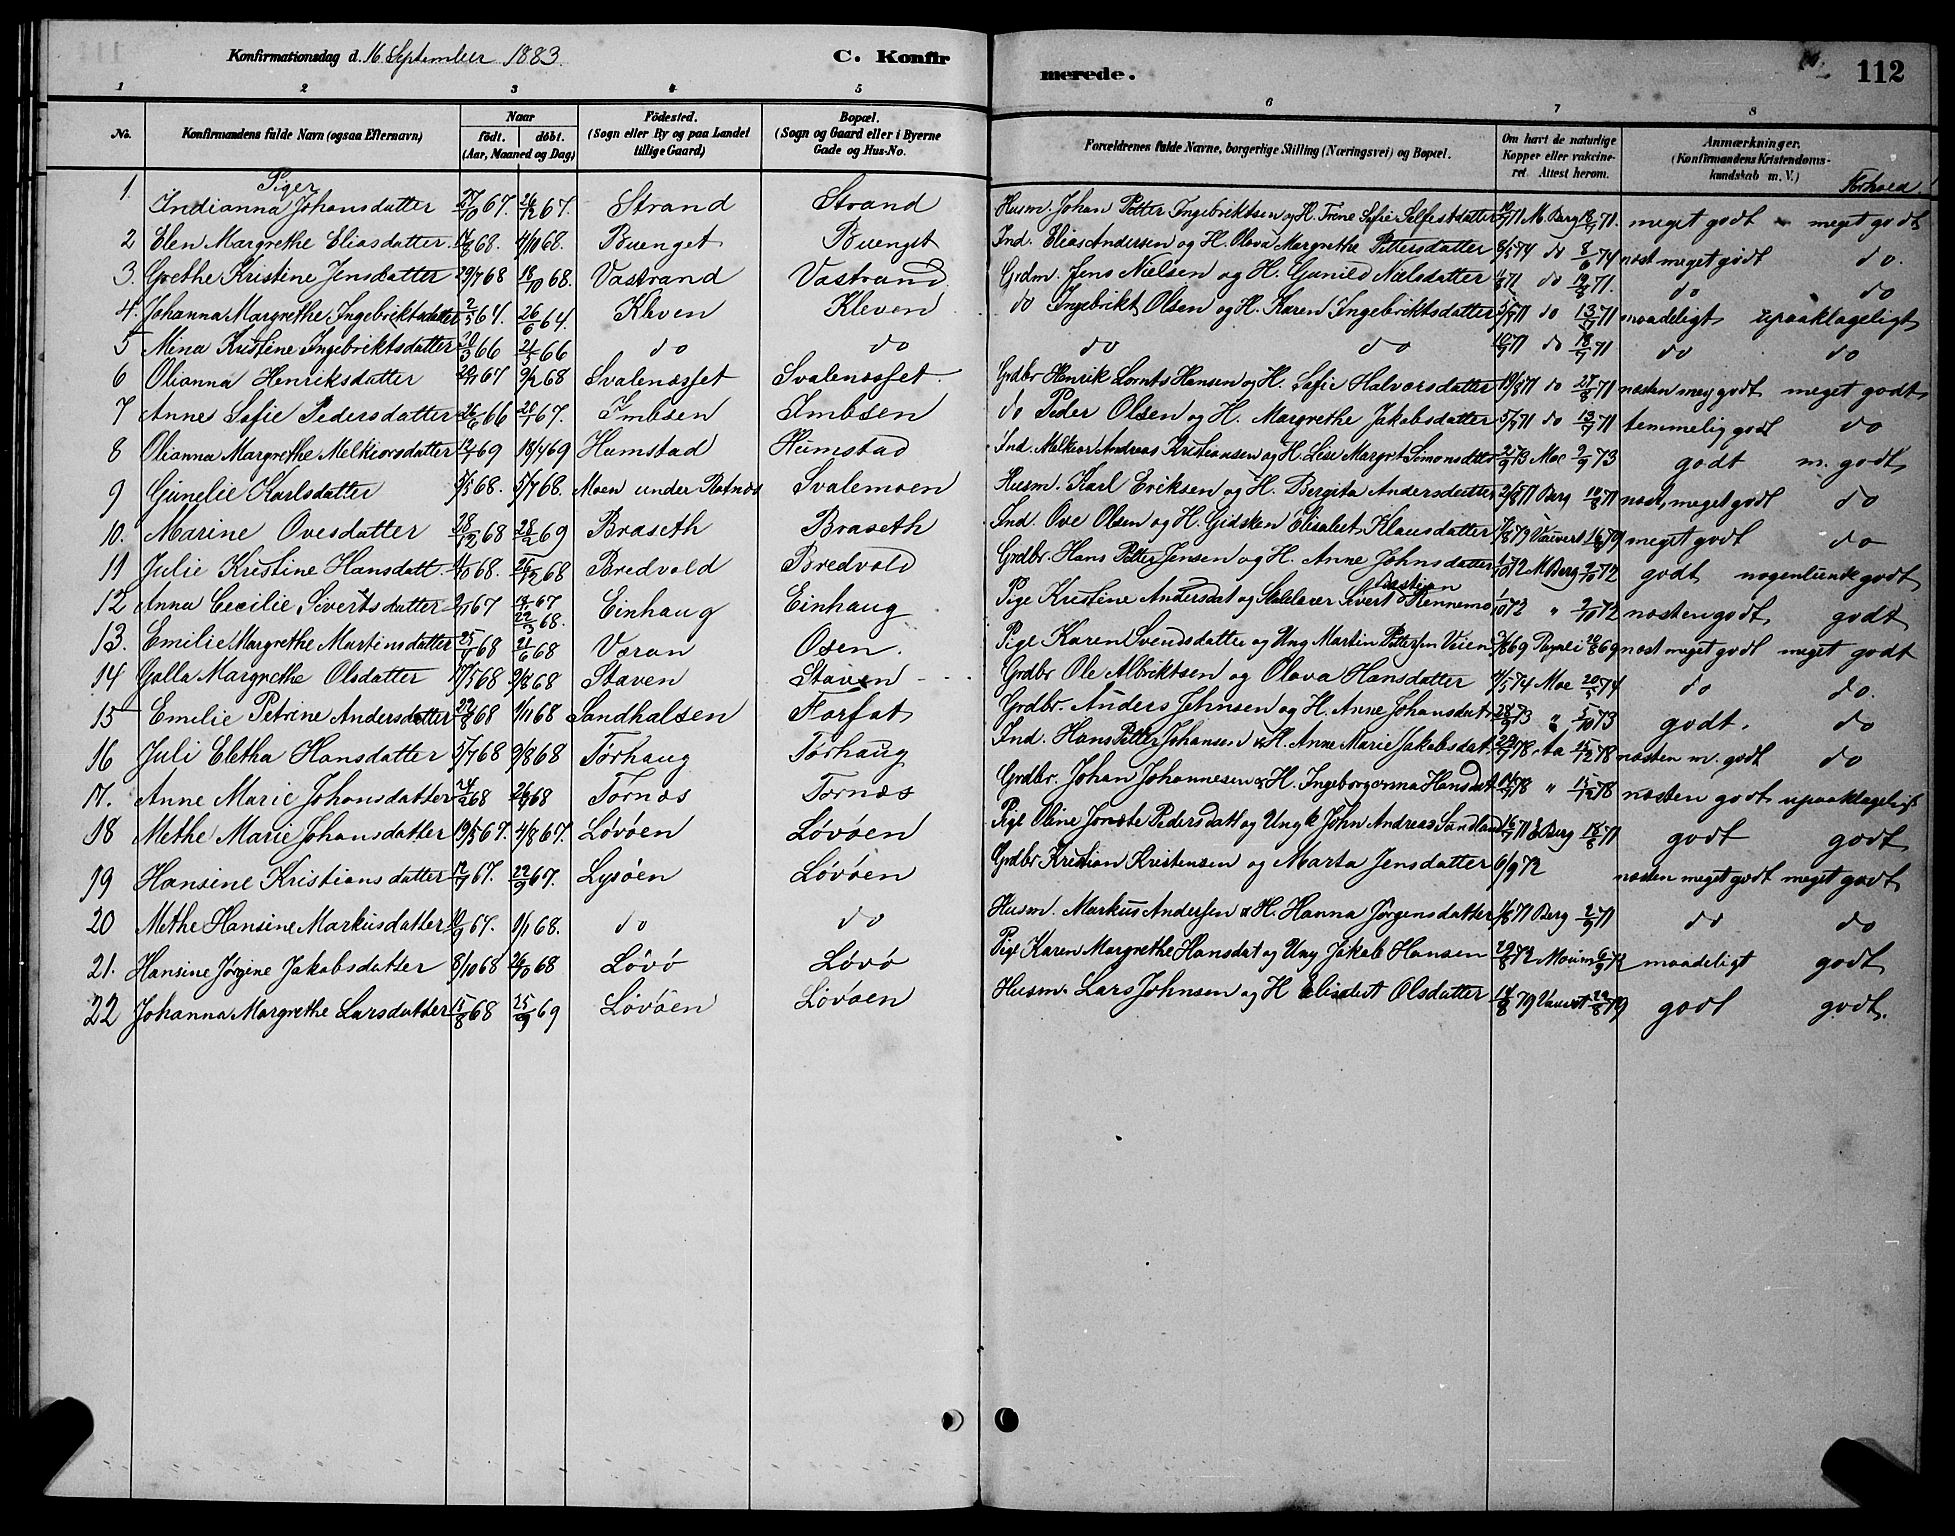 Konfirmationsdag d. 16 September 1883. C. Konfirmerede. 112
1 2 3 4 5 6 7 8
No. Konfirmandens fulde Navn (ogsaa Efternavn) Naar födt. döbt. (Aar, Maaned og Dag) Födested. (Sogn eller By og paa Landet tillige Gaard) Bopæl. (Sogn og Gaard eller i Byerne Gade og Hus-No. Forældrenes fulde Navne, borgerlige Stilling (Næringsvei) og Bopæl. Om havt de naturlige Kopper eller vakcineret. Attest herom. Anmærkninger. (Konfirmandens Kristendomskundskab m. V.) Forhold.
Piger
1. Indianna Johansdatter 67. 26/12 67. Strand Strand Husm. Johan Petter Ingebriktsen og H. Trene Sofie 71 M Berg 71. meget godt meget godt
2 Elen Margrethe Eliasdatter 68. 4/10 68. Buenget Buenget Ind. Elias Andersen og H. Olava Margrethe Pettersdatter 8/5 74 do 8/6 74 næst meget godt do.
3. Grethe Kristine Jensdatter 29/7 68 18/10 68. Vastrand Vastrand Grdm. Jens Nielsen og H. Gunild Nielsdatter 71 do 71. do do
4. Johanna Margrethe Ingebriktsdatter 2/5 64. 26/6 64. Kleven Kleven do Ingebrikt Olsen og H. Karen Ingebriktsdatter 71 do 71 maadeligt upaaklageligt
5 Mina Kristine Ingebriktsdatter 66 21/5 66 do do do do 71 do 71 do do
6 Olianna Henriksdatter 67 9/2 68 Svalenæsset Svalenæsset Grdbr Henrik Lornts Hansen og H. Sofie Halvorsdatter 19/8 71 do 27/8 71 næsten meg godt meget godt
7 Anne Sofie Pedersdatter 66 67. Imbsen Imbsen do Peder Olsen og H. Margrethe Jakobsdatter 71 do 71 temmelig godt do
8 Olianna Margrethe Melkiorsdatter 69 18/4 69 Humstad Humstad Ind. Melkior Andreas Kristiansen og H. Lise Margret Simonsdatter 73 Moe 2/9 73 godt m. godt
9 Gunelie Karlsdatter 68. 5/7 68. Moen under Svalemoen Husm. Karl Eriksen og H. Bergita Andersdatter 71 Berg 71 næst, meget godt do
10. Marine Ovesdatter 28/12 68 28/2 69 Braseth Braseth Ind. Ove Olsen og H. Gidsken Elisabet Klausdatter 79 79 meget godt do
11 Julie Kristine Hansdatt. 68. 26/12 68 Bredvold Bredvold Grdbr. Hans Petter Jensen og H. Anne Johnsdatter 1/10 72 M Berg 2/10 72 godt nogenlunde godt
12 Anna Cecilie Sivertsdatter 67 67 22/3 68. Einhaug Einhaug Pige Kristine Andersdat og Sivert 1/10 72 " 2/10 72 næsten godt godt
13. Emilie Margrethe Martinsdatter 68 21/6 68 Væran Osen. Pige Karen Svendsdatter og Ung Martin Pettersen Veien 69 69 næst meget godt meget godt
14 Golla Margrethe Olsdatter 17/5 68 9/8 68 Staven Staven Grdbr Ole Albriktsen og Olava Hansdatter 74 Moe 20/5 74 do do.
15 Emilie Petrine Andersdatter 68 1/11 68 Sandhalsen Forfot Grdbr. Anders Johnsen og H. Anne Johansdatr 73 " 5/10 73 godt. do
16 Juli Eletha Hansdatter 5/7 68 9/8 68 Torhaug Torhaug Ind. Hans Petter Johansen & H. Anne Marie Jakobsdat. 78 78 næsten m. godt do
17. Anne Marie Johansdatter 68 68 Tornæs Tornæs Grdbr. Johan Johannesen & H. Ingeborganna Hansdat. 78 " 78 næsten godt upaaklageligt
18 Methe Marie Johansdatter 19/5 67. 4/8 67. Lövöen Lövöen Pige Oline Pedersdatt og Ungk John Andreas 71 Berg 71 godt godt
19 Hansine Kristiansdatter 67. 22/9 67. Lysöen Lövöen Grdbr Kristian Kristensen og Marta Jensdatter 6/9 72 næsten meget godt meget godt
20 Methe Hansine Markusdatter 67. 1/1 68. do do Husm. Markus Andersen & H. Hanna Jörgensdatter 71 Berg 2/9 71 do do
21. Hansine Jörgine Jakobsdatter 8/10 68 26/10 68 Lövö Lövö Pige Karen Margrethe Hansdat og Ung Jakob Hansen 29/8 72 72 maadeligt godt
22 Johanna Margrethe Larsdatter 15/8 68 25/9 69 Lövöen Lövöen Husm. Lars Johnsen og H Elisabet Olsdatter 79 79 godt godt.